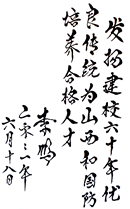 发扬建校六十年优
良传统为山西和国防
培养合格人才
李鹏
二零零一年
六月十八日